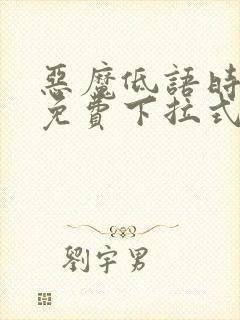 惡魔低語時
免費下拉式
劉宇男